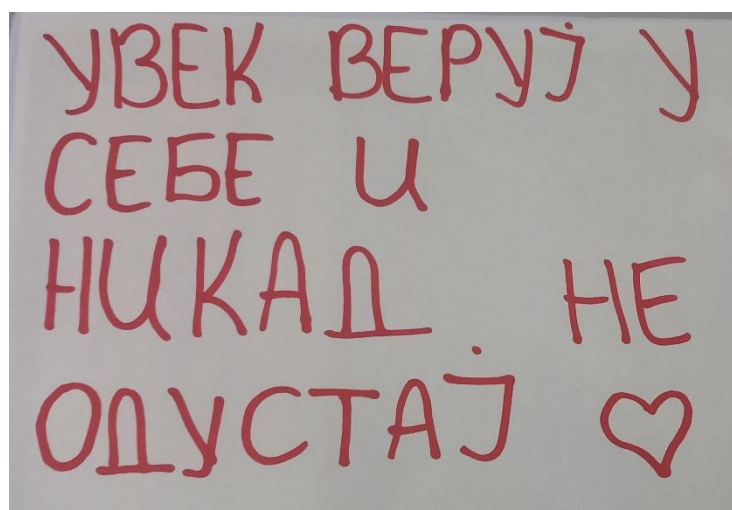 УВЕК ВЕРУЈ У
СЕБЕ И
НИКАД НЕ
ОДУСТАЈ ♡